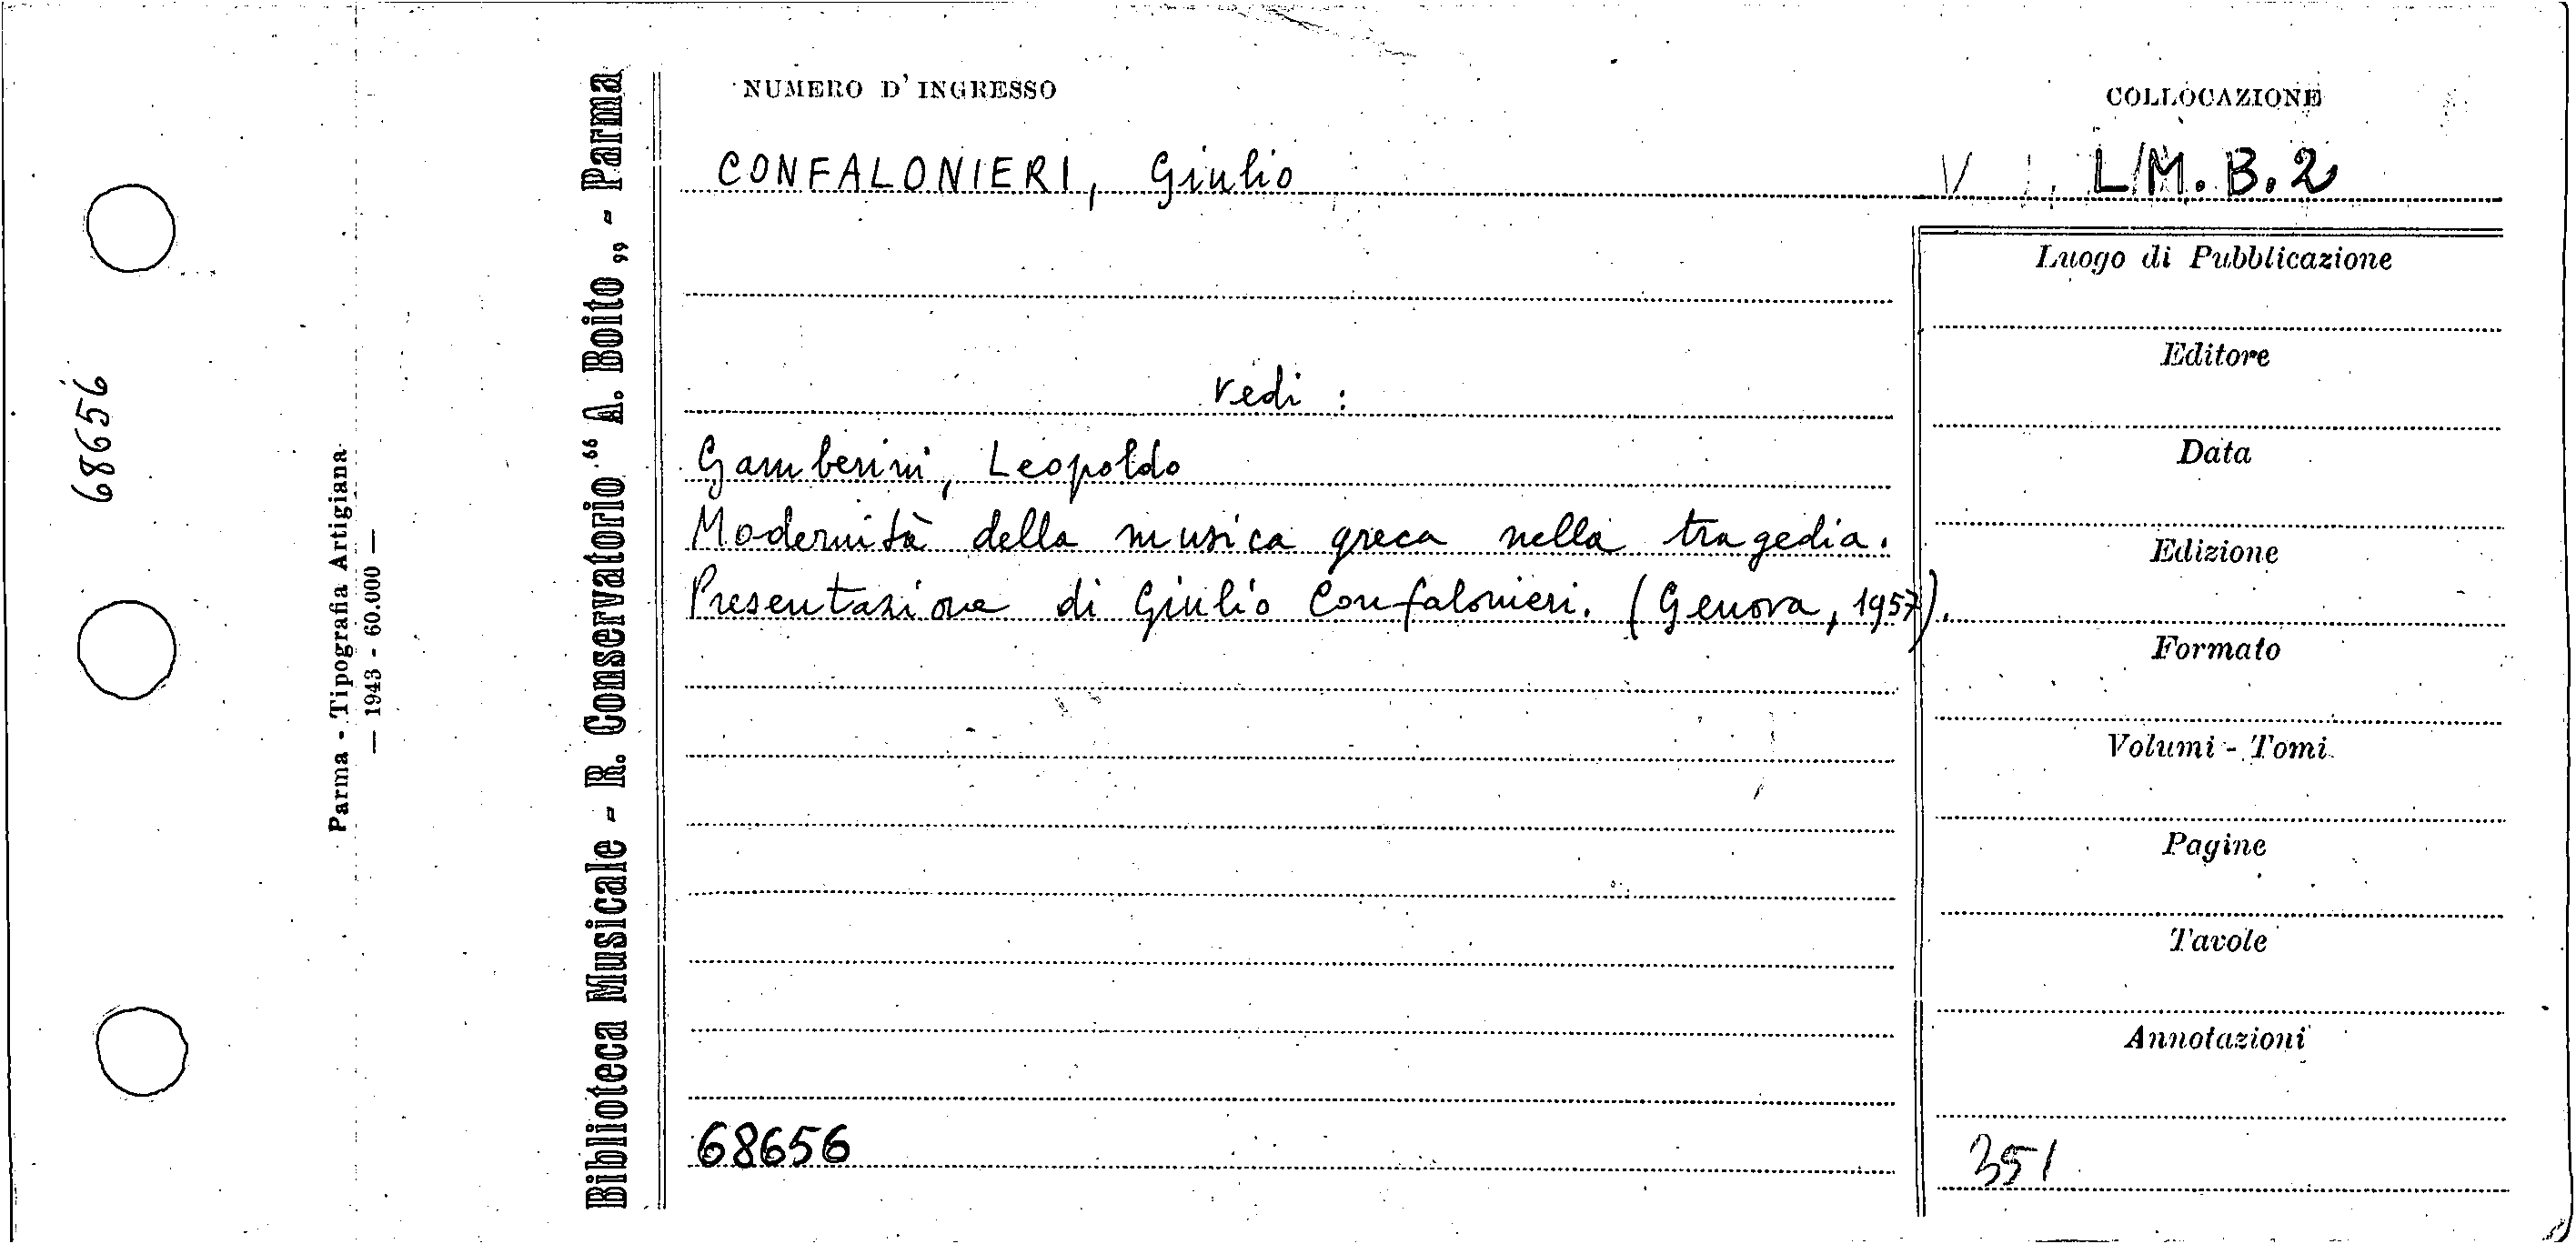 68656
Parma - Tipografia Artigiana
— 1943 - 60.000 —
Biblioteca Musicale - R. Conservatorio “ A. Boito „ - Parma
NUMERO D'INGRESSO
COLLOCAZIONE
CONFALONIERI, Giulio
L/M.B.2
vedi :
Gamberini, Leopoldo
Modernità della musica greca nella tragedia.
Presentazione di Giulio Confalonieri. (Genova, 1957).
68656
Luogo di Pubblicazione
Editore
Data
Edizione
Formato
Volumi - Tomi
Pagine
Tavole
Annotazioni
351